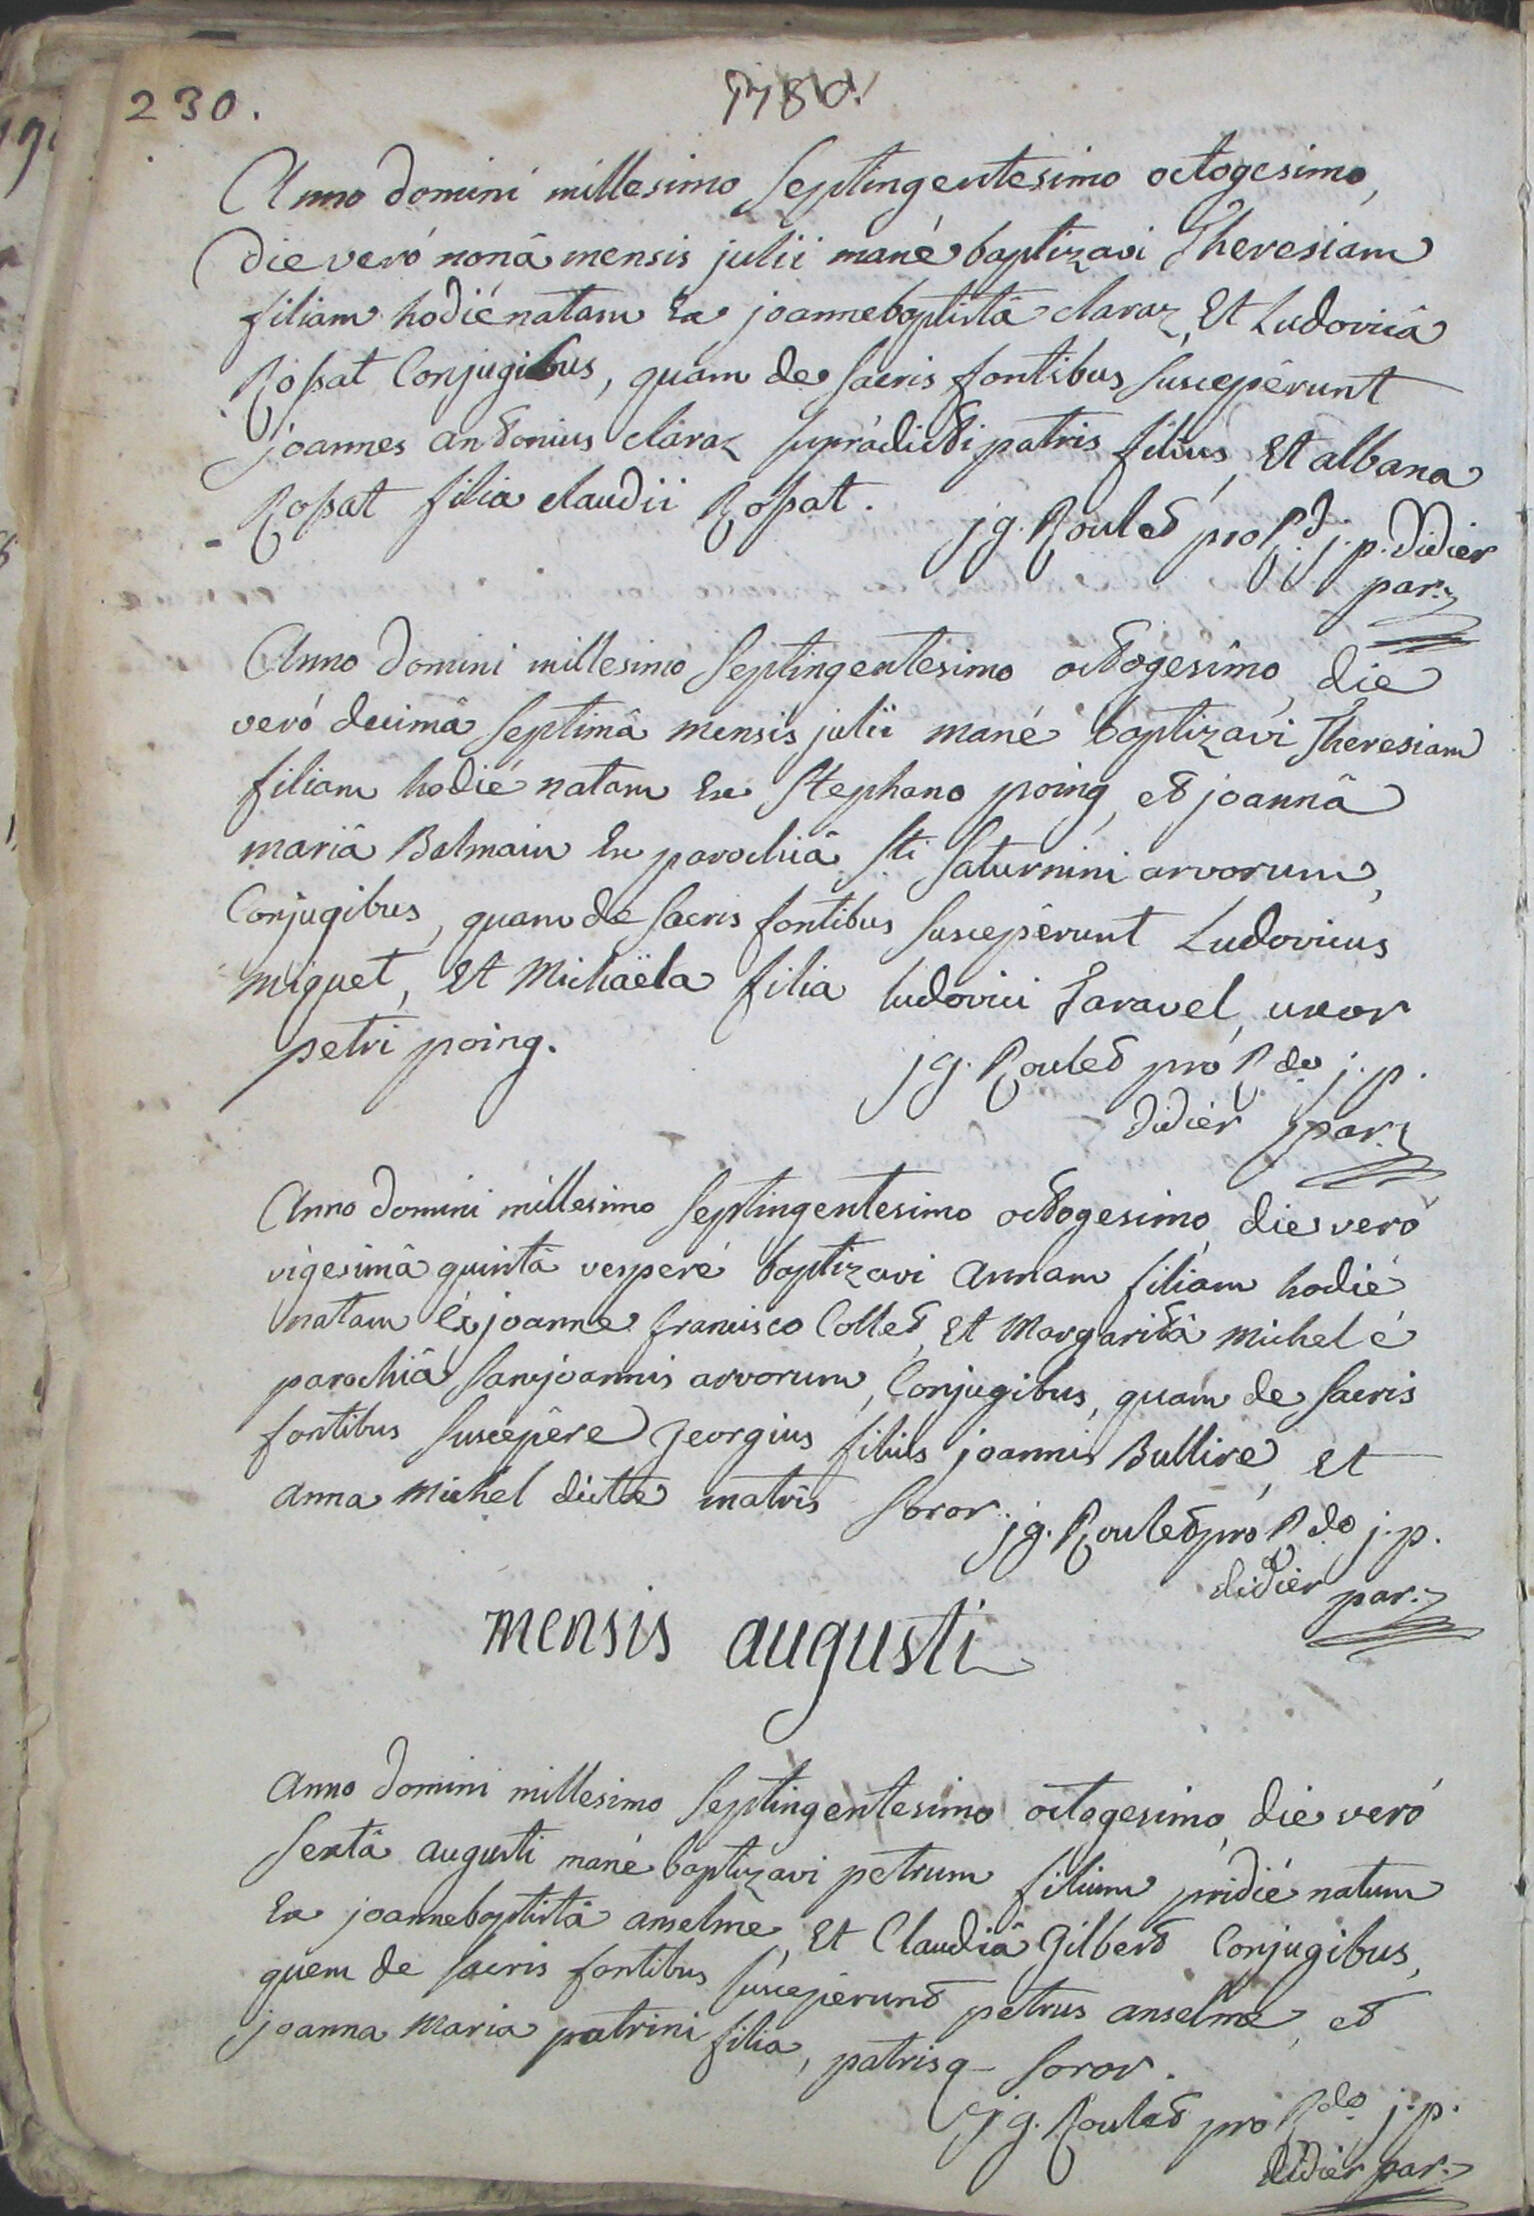 230.
1780.
Anno domini millesimo Septingentesimo octogesimo,
die veró nonâ mensis julii mané baptizavi Theresiam
filiam hodié natam Ex joannebaptistâ claraz, Et Ludovicâ
Roſsat Conjugibus, quam de sacris fontibus susceperunt
joannes antonius claraz suprádicti patris filius, Et albana
Roſsat filia claudii Roſsat.
jg. Roulet pro Rd. j. p. didier
par.
Anno domini millesimo Septingentesimo octogesimo, die
veró decimâ septimâ mensis julii mané baptizavi Theresiam
filiam hodié natam Ex Stephano poing, et joannâ
mariâ Balmain Ex parochiâ Sti Saturnini arvorum,
Conjugibus, quam de sacris fontibus susceperunt Ludovicus
miquet, Et Michaëla filia ludovici Taravel, uxor
petri poing.
jg. Roulet pró Rdo j. p.
didier par.
Anno domini millesimo Septingentesimo octogesimo, die veró
vigesimâ quintâ vesperé baptizavi annam filiam hodié
natam Ex joanne francisco Collet, Et Margaritâ michel é
parochiâ sanjoannis arvorum, Conjugibus, quam de sacris
fontibus suscepêre georgius filius joannis Bullire, Et
anna michel dictæ matris soror.
jg. Roulet pró Rdo j. p.
didier par.
mensis augusti
anno domini millesimo Septingentesimo octogesimo, die veró
sextâ augusti mané baptizavi petrum filium pridié natum
Ex joannebaptistâ anselme, Et Claudiâ Gilbert Conjugibus,
quem de sacris fontibus susceperunt petrus anselme, et
joanna maria patrini filia, patrisq soror.
jg. Roulet pro Rdo j. p.
didier par.